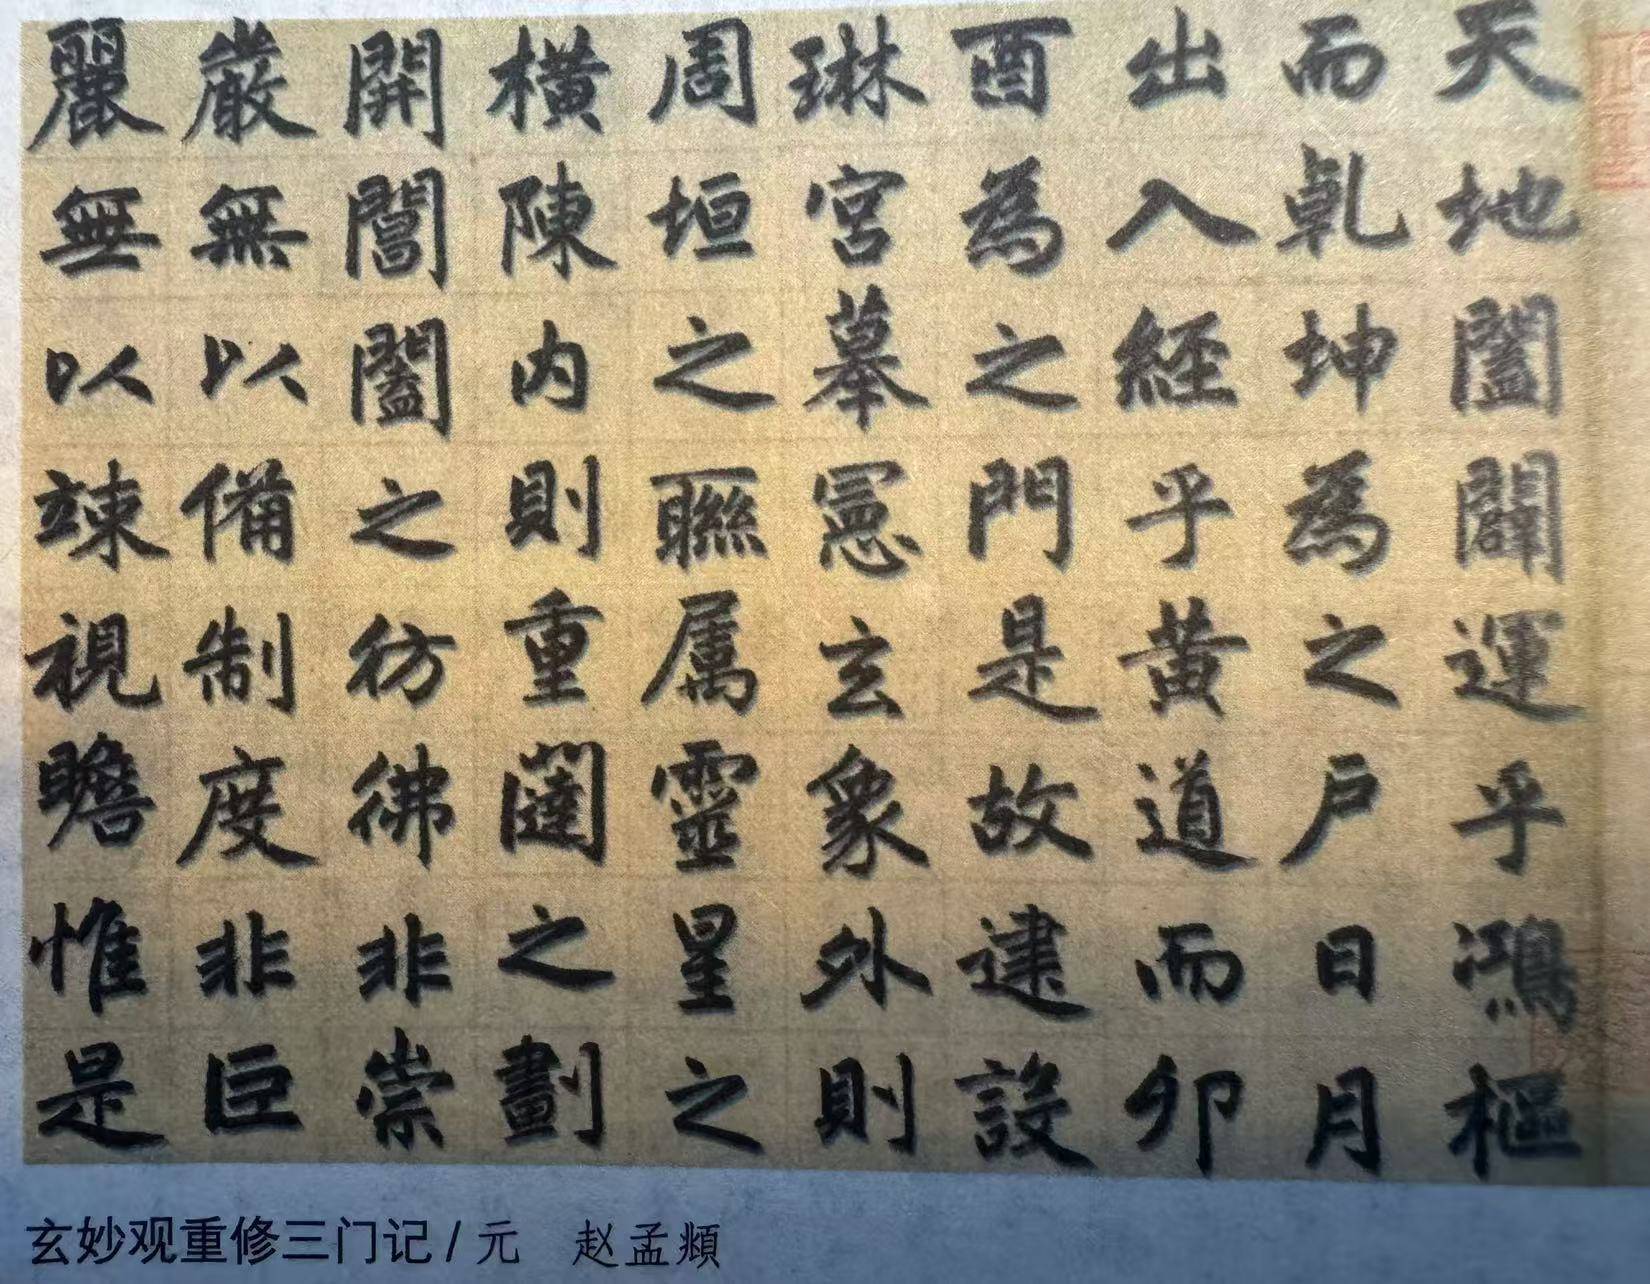 天地闔闢運乎鴻樞
而乾坤為之戶日月
出入經乎黄道而卯
酉為之門是故建設
琳宮摹憲玄象外則
周垣之聮属靈星之
横陳内則重闥之劃
開閶闔之彷彿非崇
嚴無以備制度非巨
麗無以竦視瞻惟是
玄妙观重修三门记 / 元 赵孟頫